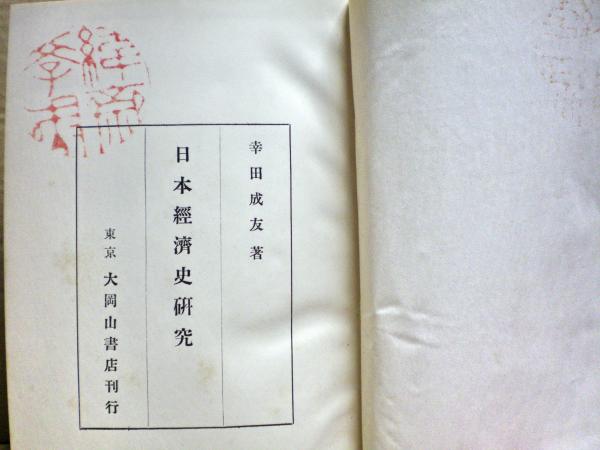 幸田成友著
日本經濟史研究
東京 大岡山書店刊行